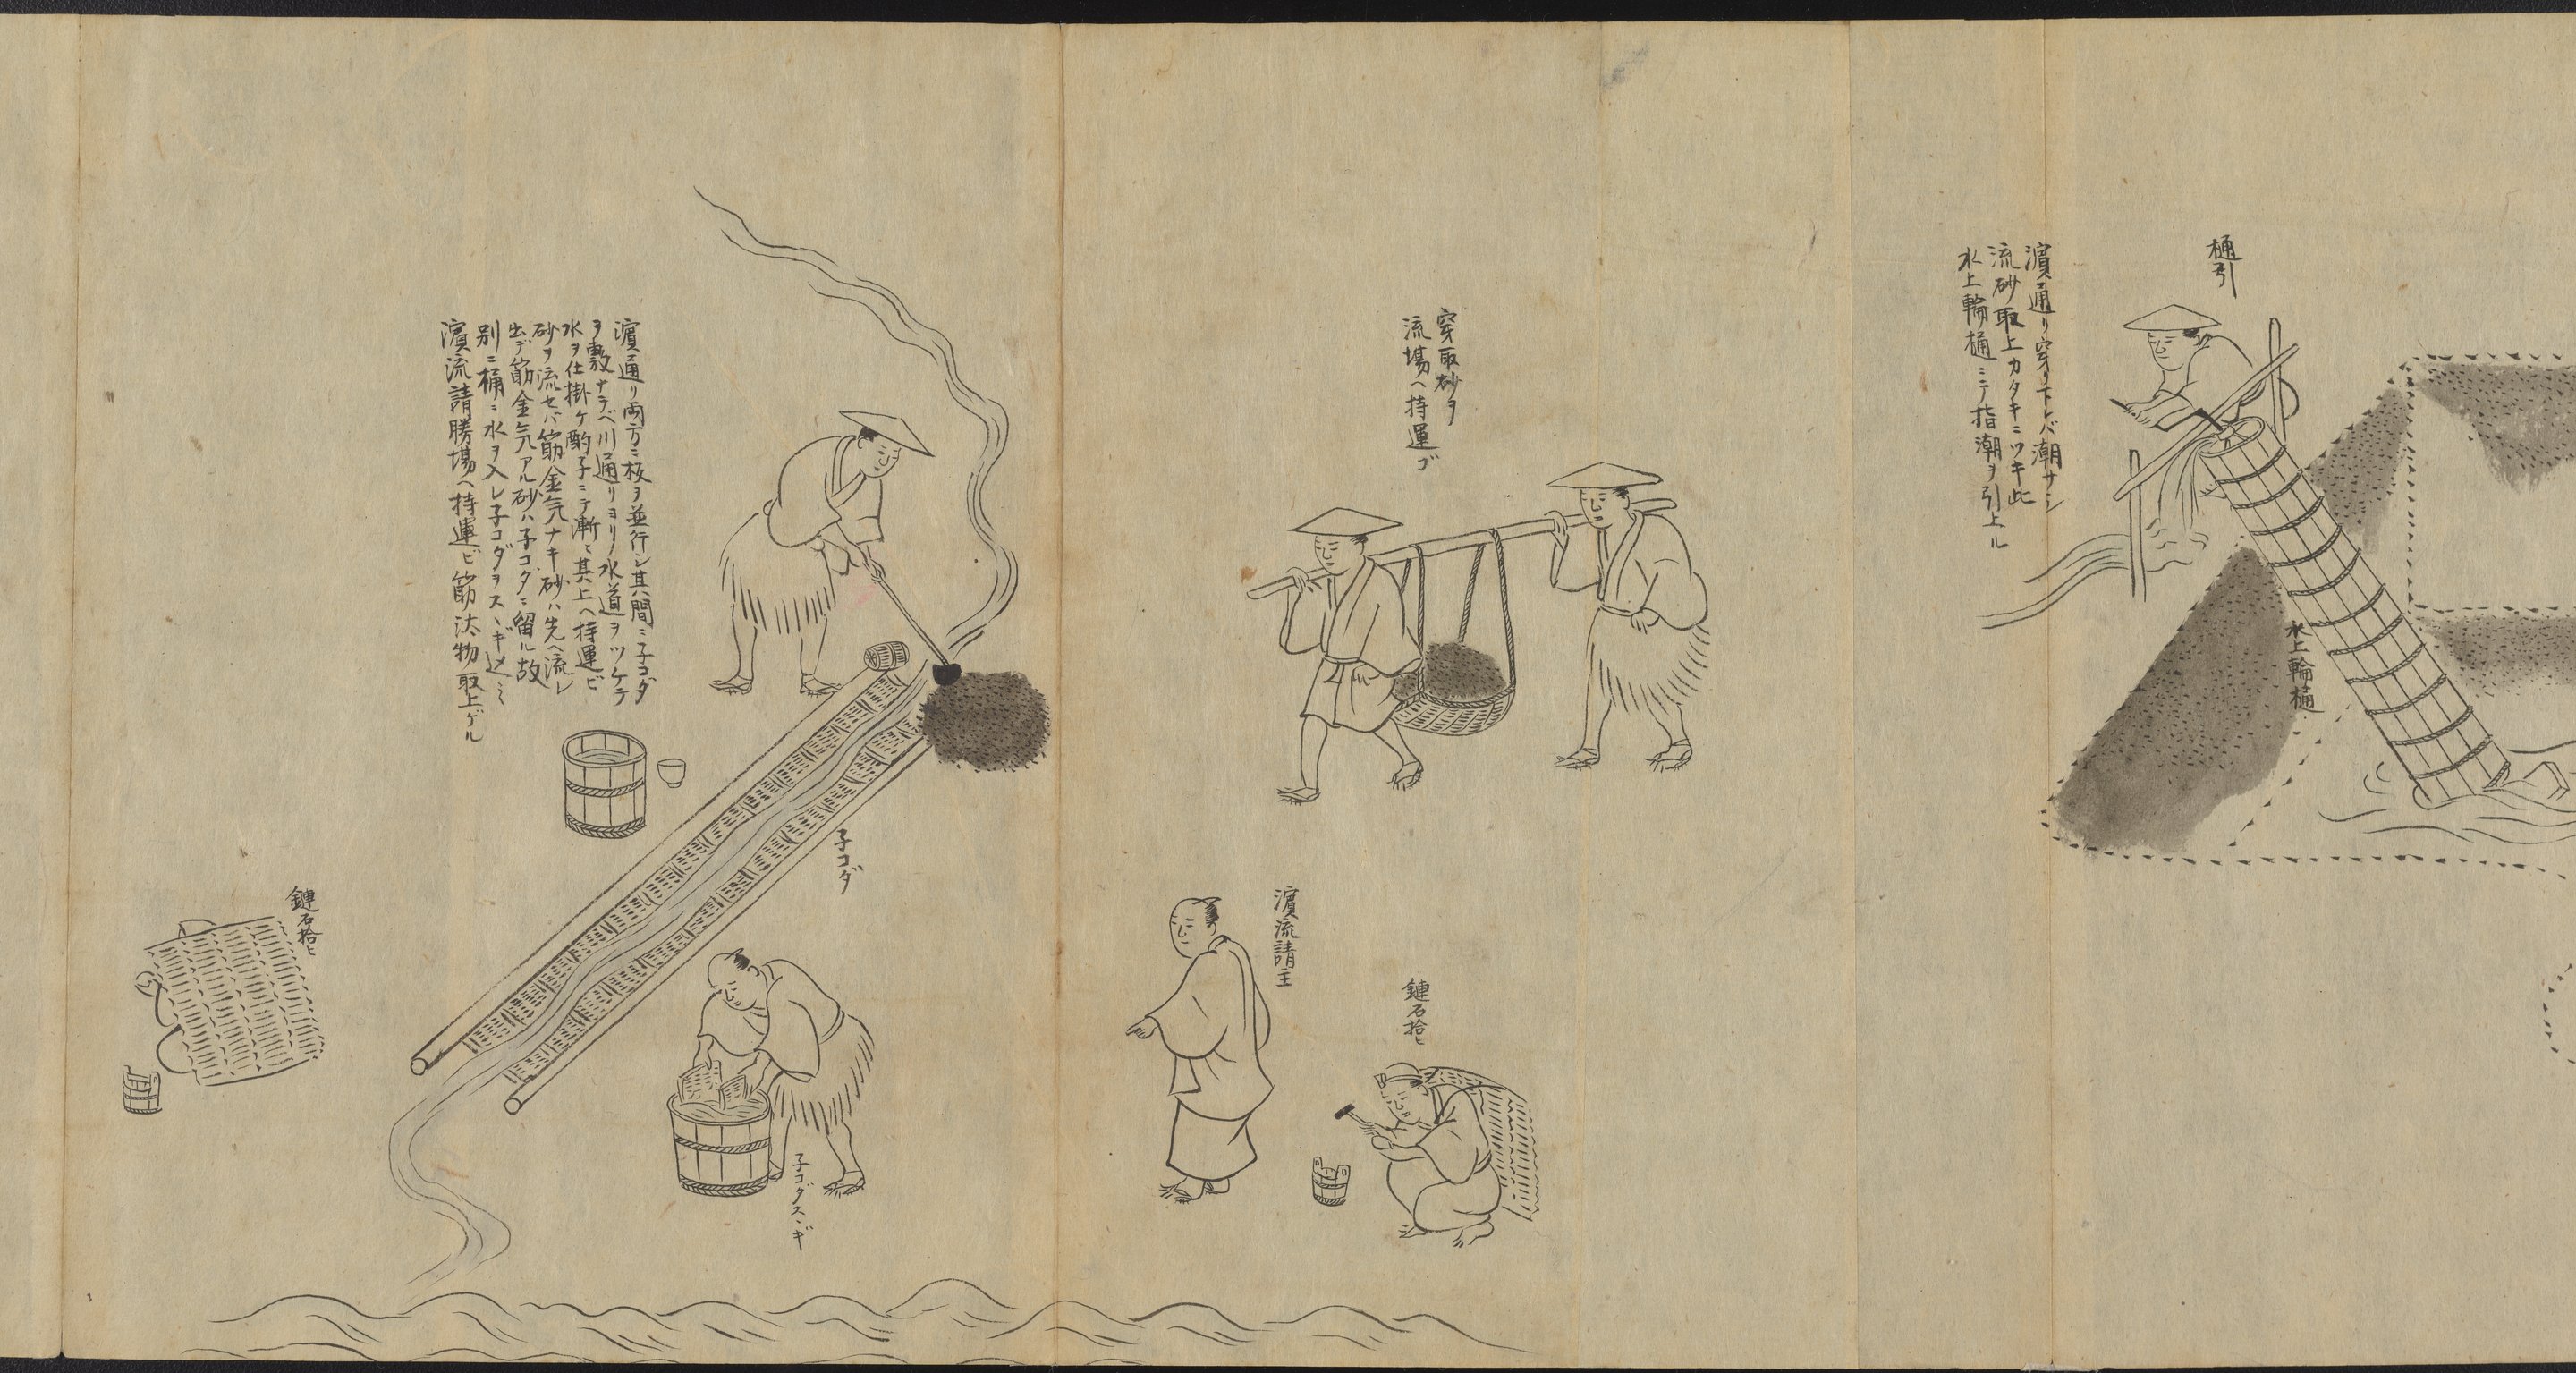 樋引
濱通リ穿リ下レバ潮サシ
流砂取上カタキニツキ此
水上輪樋ニテ指潮ヲ引上ル
水上輪樋
穿取砂ヲ
流場ヘ持運ブ
濱流請主
鏈石拾ヒ
濱通リ両方ニ板ヲ並行シ其間ニ子コダ
ヲ敷ナラベ川通リヨリノ水道ヲツケテ
水ヲ仕掛ケ酌子ニテ漸々其上ヘ持運ビ
砂ヲ流セバ筋金気ナキ砂ハ先ヘ流レ
出デ筋金気アル砂ハ子コダニ留ル故
別ニ桶ニ水ヲ入レ子コダヲスヽギ込ミ
濱流請勝場ヘ持運ビ筋汰物取上ゲル
子コダ
子コダスヽギ
鏈石拾ヒ